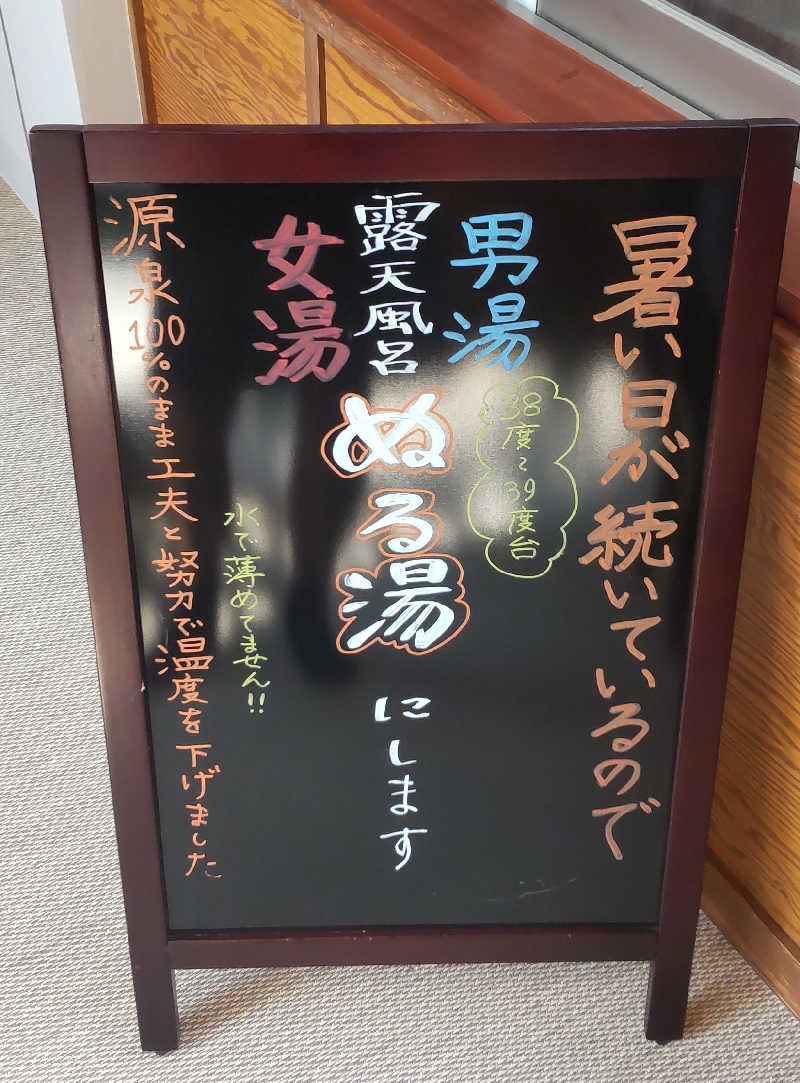 暑い日が続いているので
男湯
38度~39度台
露天風呂
ぬる湯にします
女湯
水で薄めてません!!
源泉100%のまま工夫と努力で温度を下げました